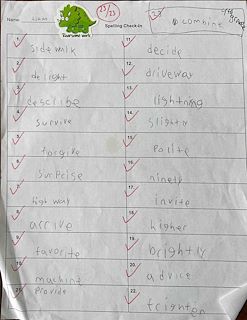 Name Liam
23/23
Awesome work
Spelling Check-In
23.
combine
4th grade
1.
sidewalk
2.
delight
3.
describe
4.
survive
5.
forgive
6.
surprise
7.
highway
8.
arrive
9.
favorite
10.
machine
21.
provide
11.
decide
12.
driveway
13.
lightning
14.
slightly
15.
polite
16.
ninety
17.
invite
18.
higher
19.
brightly
20.
advice
22.
frighten